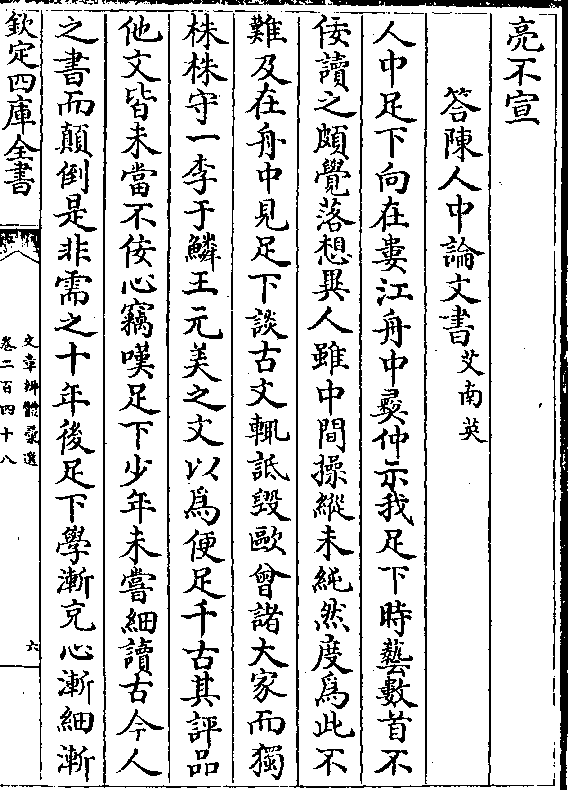 亮不宣
答陳人中論文書艾南英
人中足下向在婁江舟中彛仲示我足下時藝數首不
佞讀之頗覺落想異人雖中間操縱未純然度爲此不
難及在舟中見足下談古文輒詆毀歐曾諸大家而獨
株株守一李于鱗王元美之文以爲便足千古其評品
他文皆未當不佞心竊嘆足下少年未嘗細讀古今人
之書而顛倒是非需之十年後足下學漸充心漸細漸
欽定四庫全書
文章辨體彚選
卷二百四十八
六